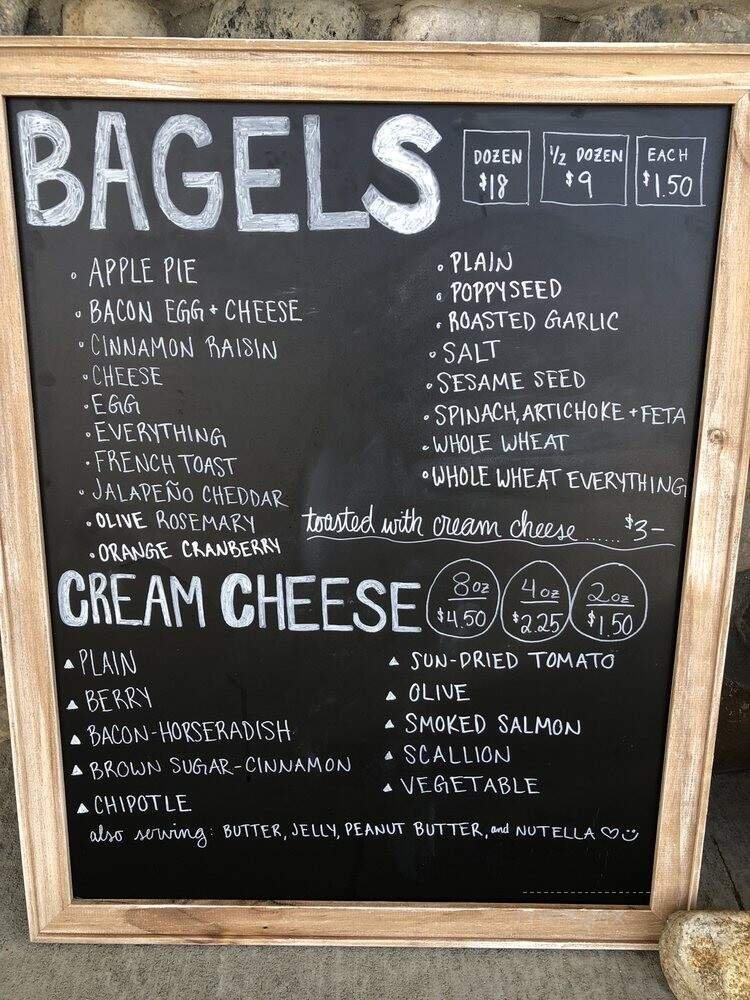 BAGELS
DOZEN
$18
1/2 DOZEN
$9
EACH
$1.50
• APPLE PIE
• BACON EGG + CHEESE
• CINNAMON RAISIN
• CHEESE
• EGG
• EVERYTHING
• FRENCH TOAST
• JALAPEÑO CHEDDAR
• OLIVE ROSEMARY
• ORANGE CRANBERRY
• PLAIN
• POPPYSEED
• ROASTED GARLIC
• SALT
• SESAME SEED
• SPINACH, ARTICHOKE + FETA
• WHOLE WHEAT
• WHOLE WHEAT EVERYTHING
toasted with cream cheese ...... $3-
CREAM CHEESE
8oz
$4.50
4oz
$2.25
2oz
$1.50
▲ PLAIN
▲ BERRY
▲ BACON-HORSERADISH
▲ BROWN SUGAR-CINNAMON
▲ CHIPOTLE
▲ SUN-DRIED TOMATO
▲ OLIVE
▲ SMOKED SALMON
▲ SCALLION
▲ VEGETABLE
also serving: BUTTER, JELLY, PEANUT BUTTER, and NUTELLA ♡ ☺